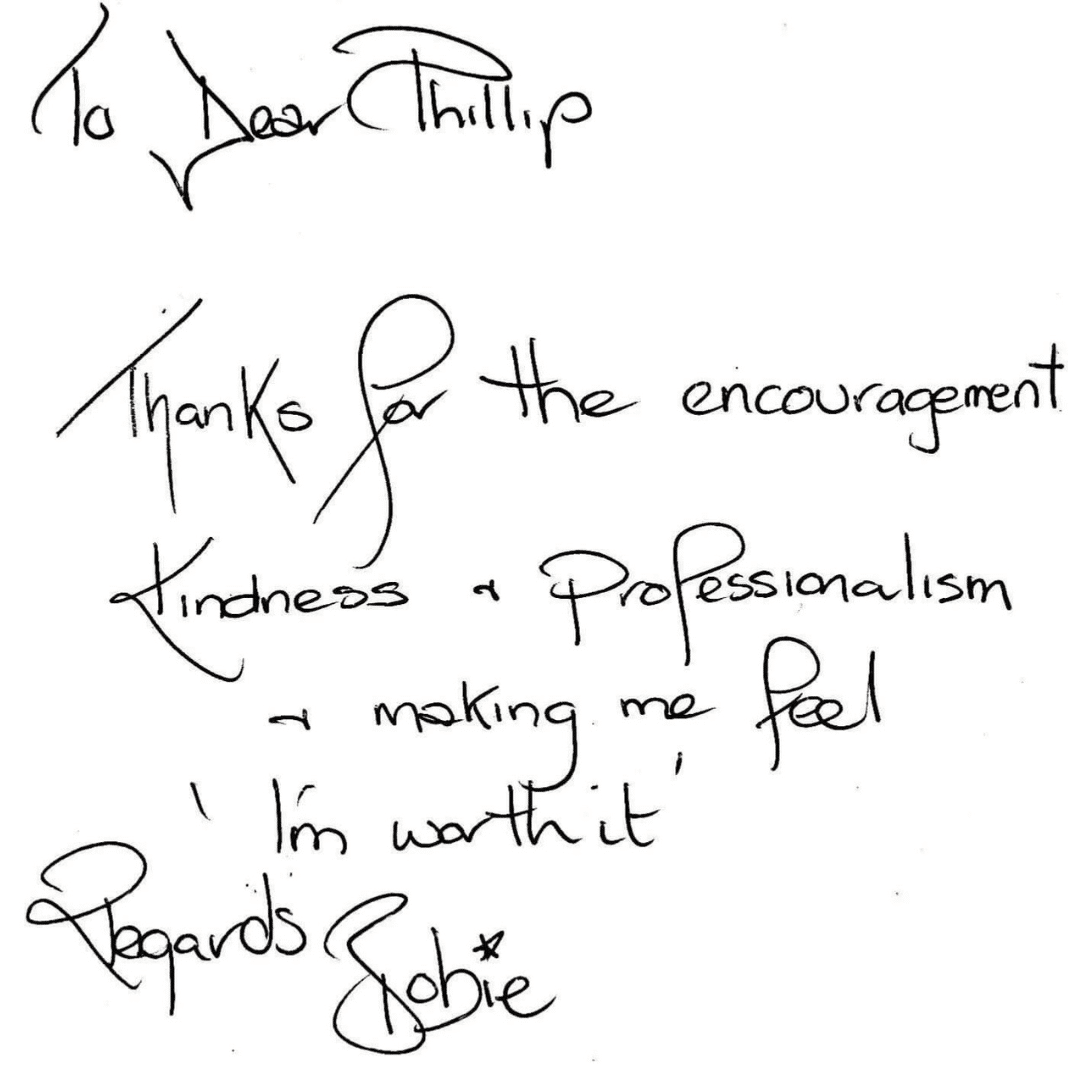 To Dear Phillip
Thanks for the encouragement
Kindness & Professionalism
& making me feel
'I'm worth it'
Regards Bobie